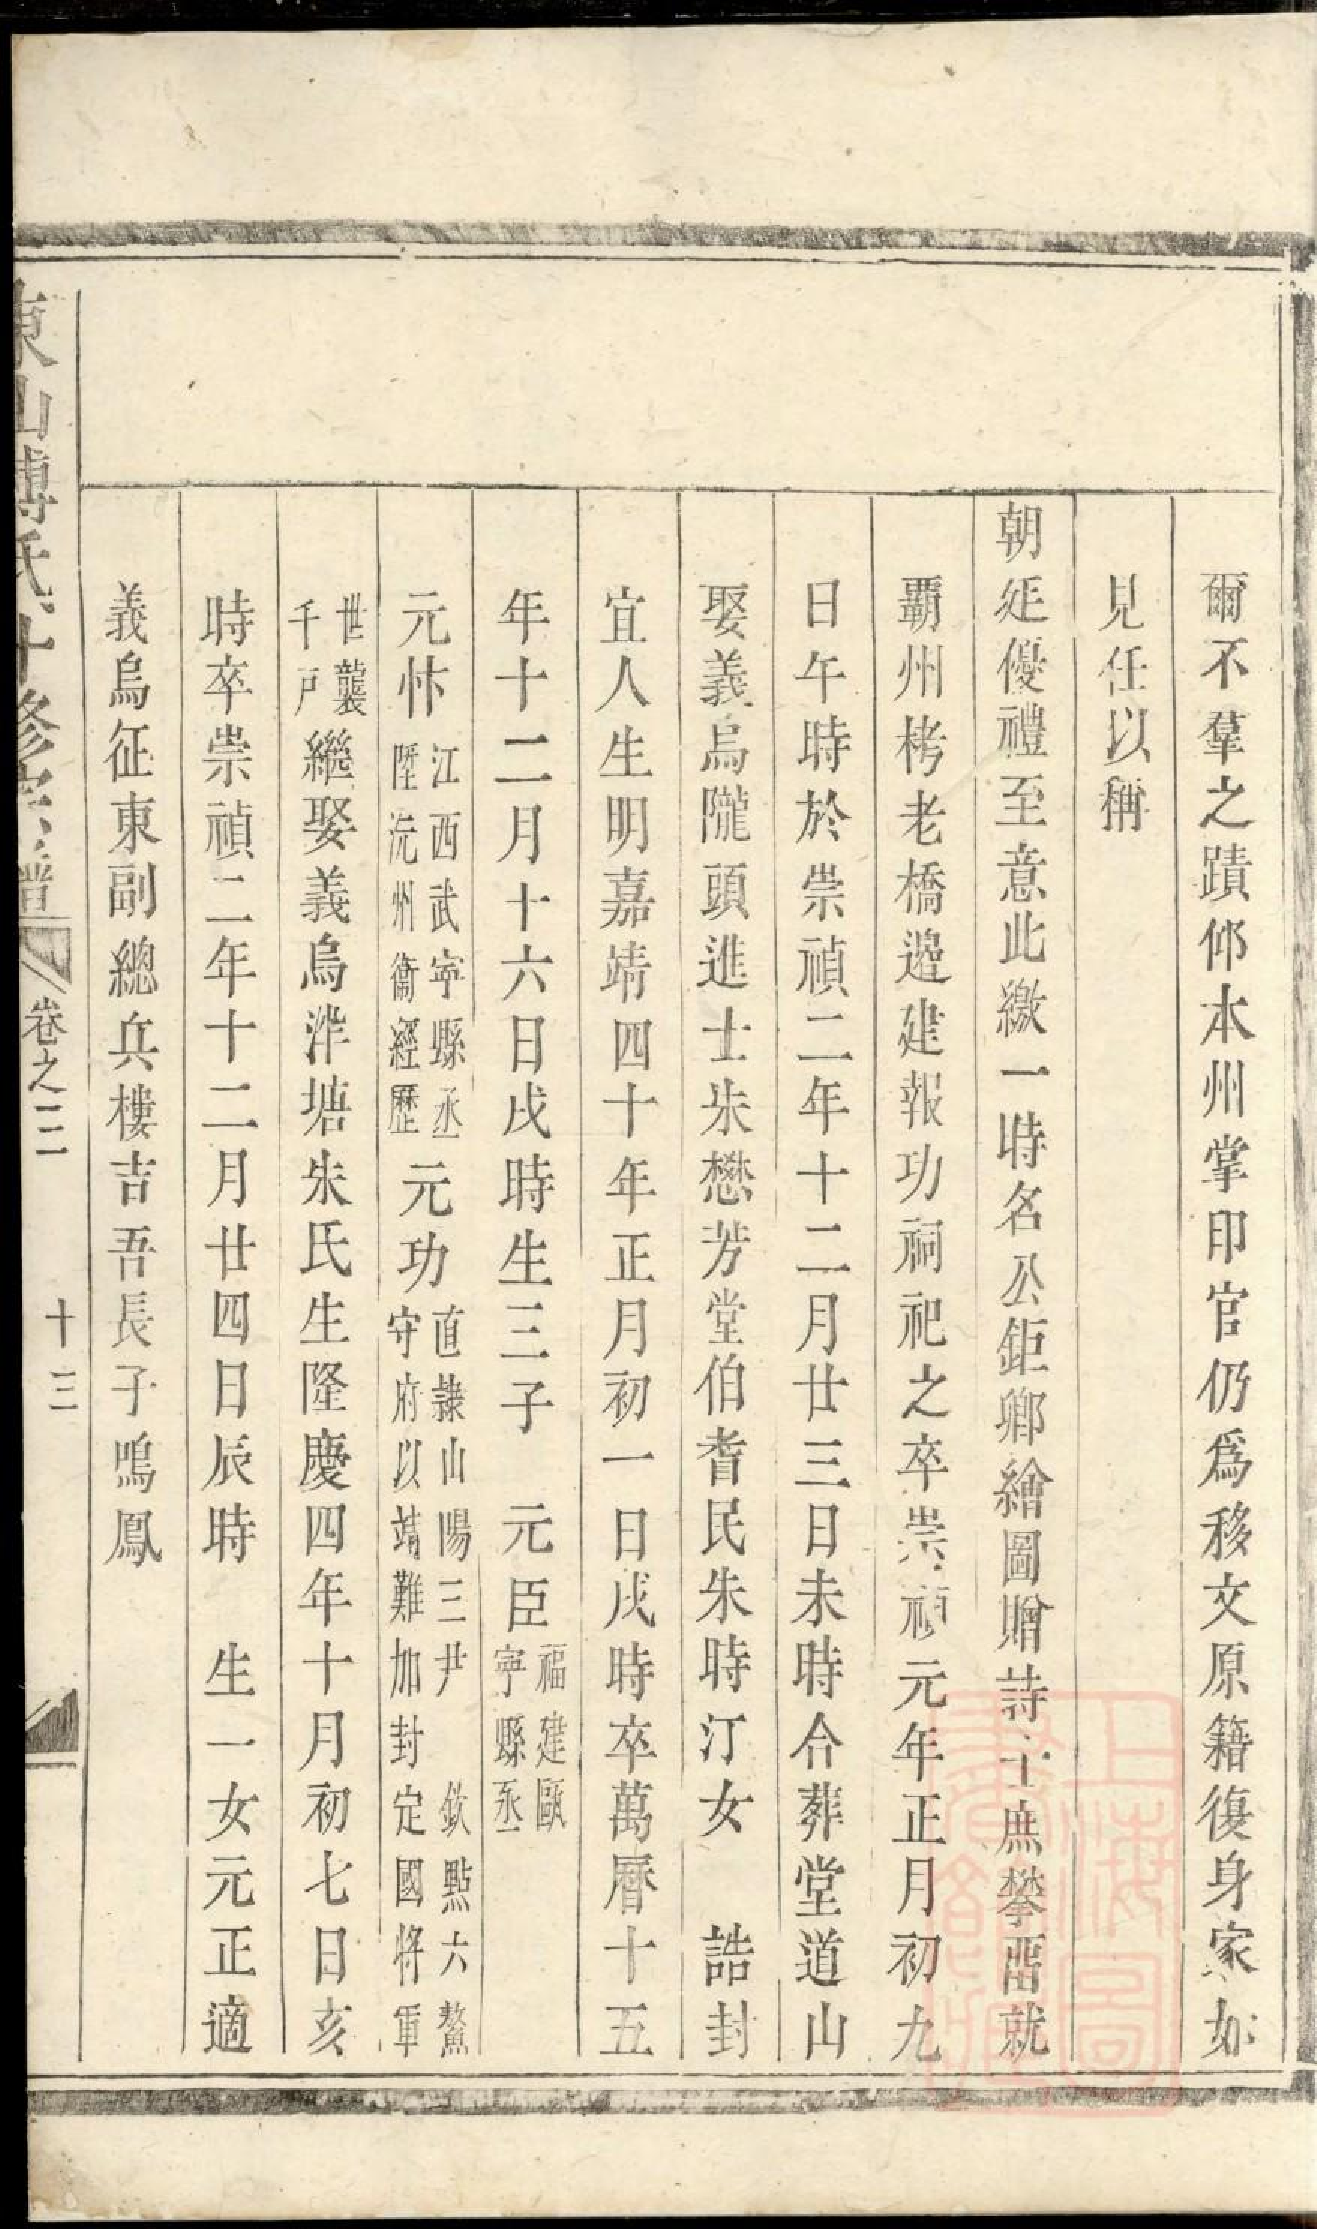 爾不羣之蹟仰本州掌印官仍爲移文原籍復身家如
見任以稱
朝廷優禮至意此繳一時名公鉅卿繪圖贈詩士庶攀畱就
覇州栲老橋邉建報功祠祀之卒崇禎元年正月初九
日午時於崇禎二年十二月廿三日未時合葬堂道山
娶義烏隴頭進士朱懋芳堂伯耆民朱時汀女　誥封
宜人生明嘉靖四十年正月初一日戌時卒萬曆十五
年十二月十六日戌時生三子　元臣福建甌寧縣丞
元忭江西武寧縣丞陞沅州衞經歷元功直隸山陽三尹　欽點六鰲守府以靖難加封定國將軍
世襲千戶繼娶義烏洋塘朱氏生隆慶四年十月初七日亥
時卒崇禎二年十二月廿四日辰時　生一女元正適
義烏征東副總兵樓吉吾長子鳴鳳
東山傅氏十修宗譜　卷之三　十三
上海圖書館藏